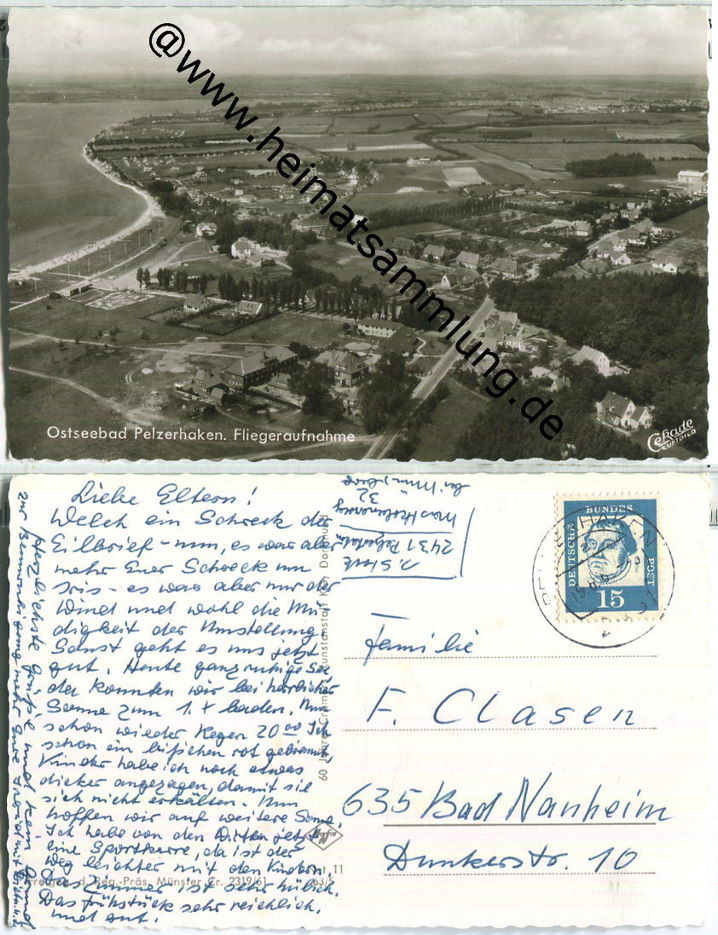 @www.heimatsammlung.de
Ostseebad Pelzerhaken. Fliegeraufnahme
Cekade
LUFTBILD
Liebe Eltern!
Welch ein Schreck der
Eilbrief - nun, es war aber
mehr Euer Schreck um
Iris - es war aber nur der
Wind und wohl die Mü-
digkeit der Umstellung.
Sonst geht es uns jetzt
gut. Heute ganz ruhige See
da konnten wir bei herrlicher
Sonne zum 1. x baden. Nun
schon wieder Regen 20 00 Ich
schon ein bißchen rot gebrannt
Kinder habe ich noch etwas
dicker angezogen, damit sie
sich nicht erkälten. Nun
hoffen wir auf weitere Sonne.
Ich habe von den jetzt
eine Sportkarre, da ist der
Weg leichter mit den Kindern.
Das Zimmer ist sehr hübsch,
Das Frühstück sehr reichlich,
und gut.
Herzlichste Grüße und
2431
32
60 Jahre Cramers Kunstanstalt KG, Dortmund
Freigeg. d. Reg.-Präs. Münster Nr. 2319/61
11
DEUTSCHE BUNDESPOST
15
PELZERHAKEN
Familie
F. Clasen
635 Bad Nauheim
Dunkerstr. 10